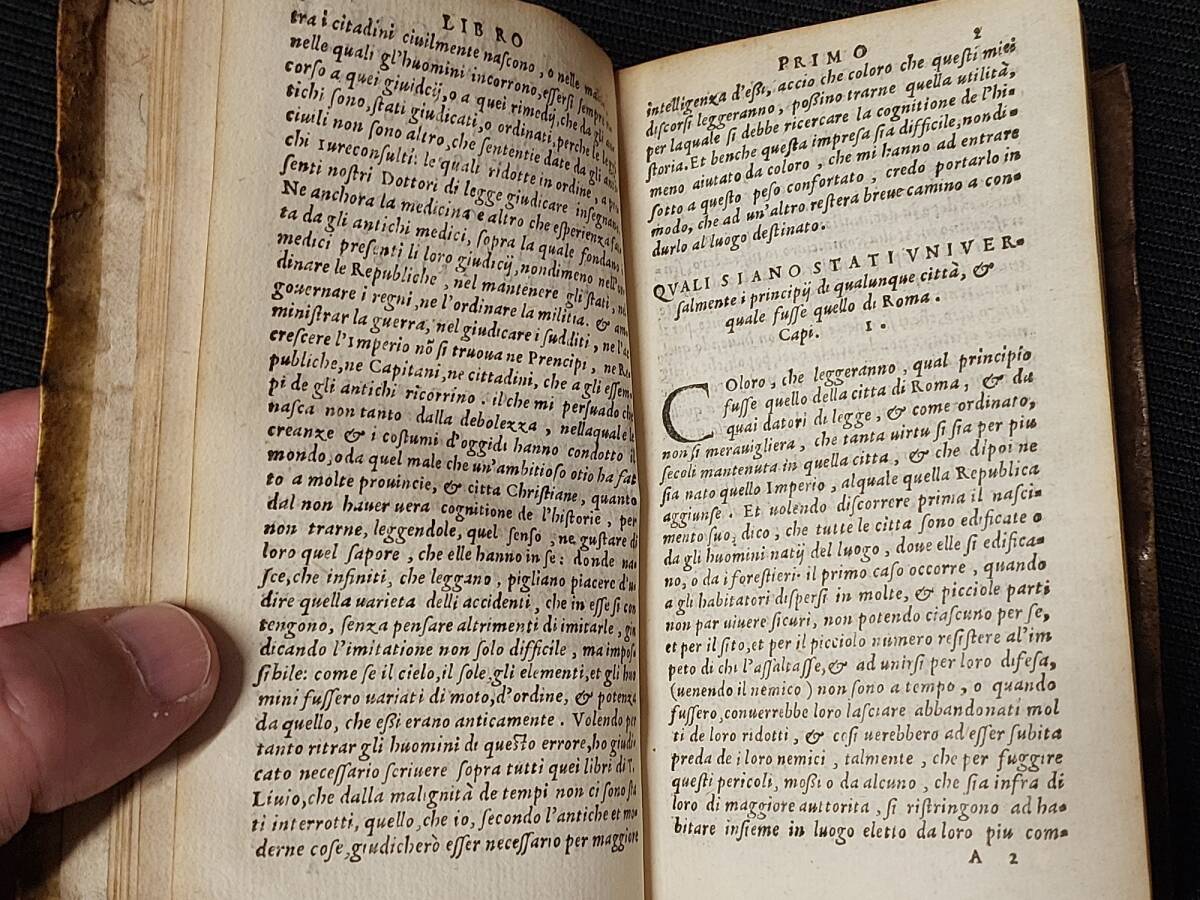 LIBRO
tra i citadini ciuilmente naſcono, o nelle
nelle quali gl'huomini incorrono, eſſerſi ſempre
corſo a quei giuidcij, o a quei rimedij, che da gli
tichi ſono, ſtati giudicati, o ordinati, perche le leggi
ciuili non ſono altro, che ſententie date da gli
chi Iureconſulti: le quali ridotte in ordine, a
ſenti noſtri Dottori di legge giudicare inſegnano
Ne anchora la medicina e altro che eſperienza
ta da gli antichi medici, ſopra la quale fondano
medici preſenti li loro giudicij, nondimeno nell'
dinare le Republiche, nel mantenere gli ſtati,
gouernare i regni, ne l'ordinare la militia. &
miniſtrar la guerra, nel giudicare i ſudditi, ne l'
creſcere l'Imperio nõ ſi truoua ne Prencipi, ne Re
publiche, ne Capitani, ne cittadini, che a gli eſſem
pi de gli antichi ricorrino. il che mi perſuado che
naſca non tanto dalla debolezza, nellaquale le
creanze & i coſtumi d'oggidi hanno condotto il
mondo, o da quel male che un'ambitioſo otio ha fat
to a molte prouincie, & citta Chriſtiane, quanto
dal non hauer uera cognitione de l'hiſtorie, per
non trarne, leggendole, quel ſenſo, ne guſtare di
loro quel ſapore, che elle hanno in ſe: donde na
ſce, che infiniti, che leggano, pigliano piacere d'u
dire quella uarieta delli accidenti, che in eſſe ſi con
tengono, ſenza penſare altrimenti di imitarle, giu
dicando l'imitatione non ſolo difficile, ma impoſ
ſibile: come ſe il cielo, il ſole, gli elementi, et gli huo
mini fuſſero uariati di moto, d'ordine, & potenza
da quello, che eßi erano anticamente. Volendo per
tanto ritrar gli huomini di queſto errore, ho giudi
cato neceſſario ſcriuere ſopra tutti quei libri di T.
Liuio, che dalla malignità de tempi non ci ſono ſta
ti interrotti, quello, che io, ſecondo l'antiche et mo
derne coſe, giudicherò eſſer neceſſario per maggiore
PRIMO 2
intelligenza d'eßi, accio che coloro che queſti miei
diſcorſi leggeranno, poßino trarne quella utilità,
per laquale ſi debbe ricercare la cognitione de l'hi-
ſtoria. Et benche queſta impreſa ſia difficile, non di-
meno aiutato da coloro, che mi hanno ad entrare
ſotto a queſto peſo confortato, credo portarlo in
modo, che ad un'altro reſtera breue camino a con-
durlo al luogo deſtinato.
QVALI SIANO STATI VNIVER-
ſalmente i principij di qualunque città, &
quale fuſſe quello di Roma.
Capi. I.
COloro, che leggeranno, qual principio
fuſſe quello della citta di Roma, & da
quai datori di legge, & come ordinato,
non ſi merauigliera, che tanta uirtu ſi ſia per piu
ſecoli mantenuta in quella citta, & che dipoi ne
ſia nato quello Imperio, alquale quella Republica
aggiunſe. Et uolendo diſcorrere prima il naſci-
mento ſuo, dico, che tutte le citta ſono edificate o
da gli huomini natij del luogo, doue elle ſi edifica-
no, o da i foreſtieri. il primo caſo occorre, quando
a gli habitatori diſperſi in molte, & picciole parti
non par uiuere ſicuri, non potendo ciaſcuno per ſe,
et per il ſito, et per il picciolo numero reſiſtere al'im
peto di chi l'aſſaltaſſe, & ad unirſi per loro difeſa,
(uenendo il nemico) non ſono a tempo, o quando
fuſſero, conuerrebbe loro laſciare abbandonati mol
ti de loro ridotti, & coſi uerebbero ad eſſer ſubita
preda de i loro nemici, talmente, che per fuggire
queſti pericoli, moßi o da alcuno, che ſia infra di
loro di maggiore auttorita, ſi riſtringono ad ha-
bitare inſieme in luogo eletto da loro piu com-
A 2